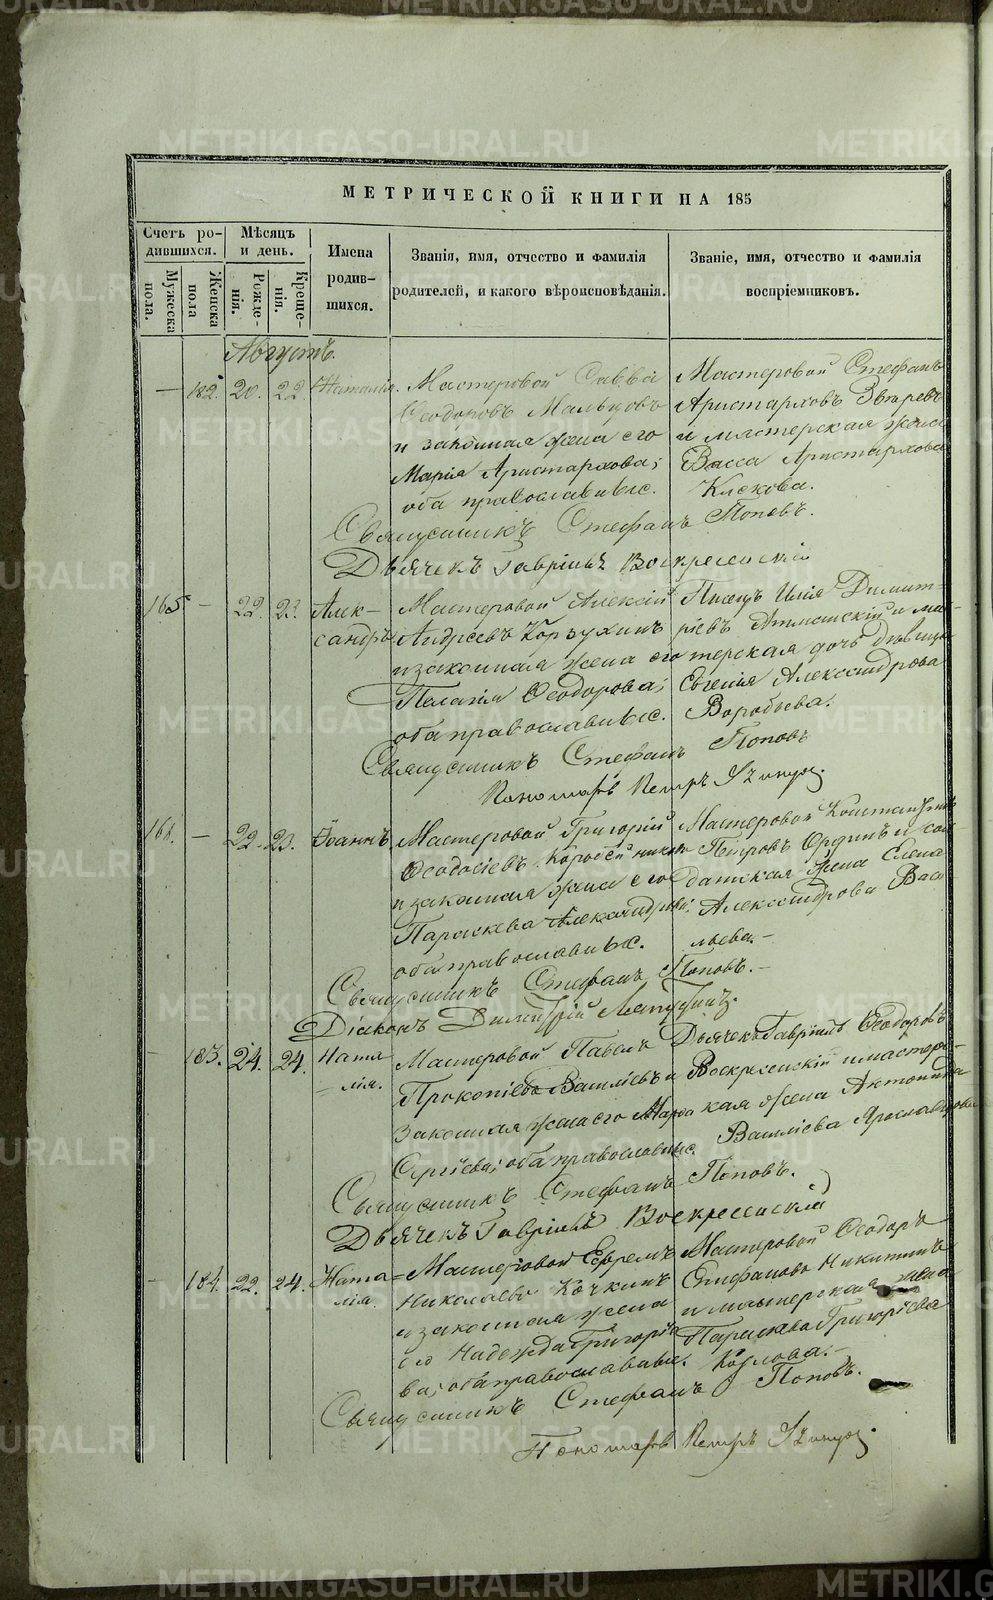 МЕТРИЧЕСКОЙ КНИГИ НА 185
Счетъ ро-
дившихся.
Мужеска
пола.
Женска
пола
Мѣсяцъ
и день.
Рожде-
нія.
Креще-
нія.
Имена
родив-
шихся.
Званія, имя, отчество и фамилія
родителей, и какого вѣроисповѣданія.
Званіе, имя, отчество и фамилія
воспріемниковъ.
Августъ.
— 182. 20. 22. Наталія.
Мастеровой Савва
Ѳеодоровъ Мальцовъ
и законная жена его
Марія Аристархова;
оба православные.
Мастеровой Стефанъ
Аристарховъ Звѣревъ
и мастерская жена
Васса Аристархова
Священникъ Стефанъ Поповъ.
Дьячекъ Гавріилъ Воскресенскій
165 — 22. 23.
Алек-
сандръ
Мастеровой Алексій
Андреевъ Корзухинъ
и законная жена его
Пелагія Ѳеодорова;
оба православные.
Писецъ Илія Димит-
ріевъ и мас-
терская дочь дѣвица
Евгенія Александрова
Воробьева.
Священникъ Стефанъ Поповъ
Пономарь Петръ
— 22. 23. Іоаннъ.
Мастеровой Григорій
Ѳеодосіевъ
и законная жена его
Параскева Александрова;
оба православные.
Мастеровой Константинъ
Петровъ и сол-
датская жена Елена
Александрова Васи
льева.—
Священникъ Стефанъ Поповъ.—
Діаконъ Димитрій
— 183. 24. 24.
Ната
—лія.
Мастеровой Павелъ
Прокопіевъ Васильевъ и
законная жена его Марѳа
Сергіева; оба православные.
Дьячекъ Гавріилъ Ѳеодоровъ
Воскресенскій и мастерс-
кая жена Антонина
Васильева Ярославцова
Священникъ Стефанъ Поповъ.
Дьячекъ Гавріилъ Воскресенскій
— 184. 22. 24.
Ната=
лія.
Мастеровой Ефремъ
Николаевъ Кочкинъ
и законная жена
его Надежда Григоріе
ва; оба православные.
Мастеровой Ѳеодоръ
Стефановъ Никитинъ
и мастерская жена
Параскева Григоріева
Козлова.—
Священникъ Стефанъ Поповъ.
Пономарь Петръ
METRIKI.GASO-URAL.RU